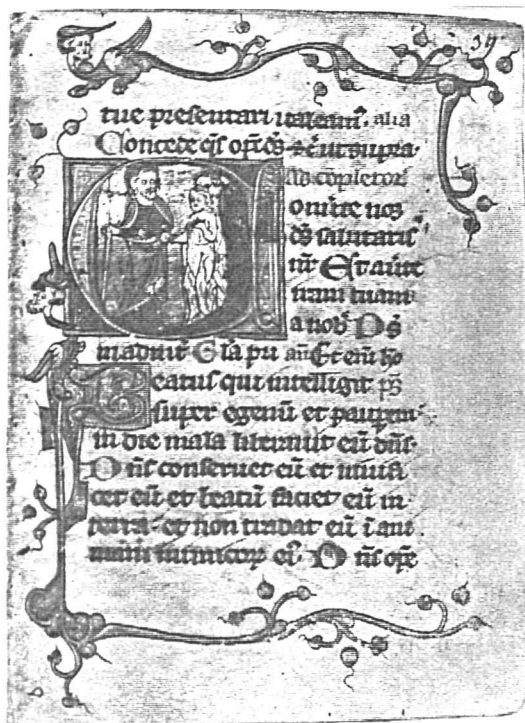 39
tue presentari ualeam⁹. alia
Concede q̄s op̄s ds̄ ut supra
Ad cōpletorī
onuerte nos
ds̄ salutaris
nr̄ Et auerte
iram tuam
a nob᷒ Ds̄
in adiut᷒ Gl̄a pr̄i an̄ Et enī ho
Beatus qui intelligit ps̄
super egenū et pauperē
in die mala liberauit eū dn̄s
Dn̄s conseruet eū et uiuifi
cet eū et beatū faciet eū in
terra et non tradat eū ī ani
mam inimicoꝝ ei᷒ Dn̄s ope